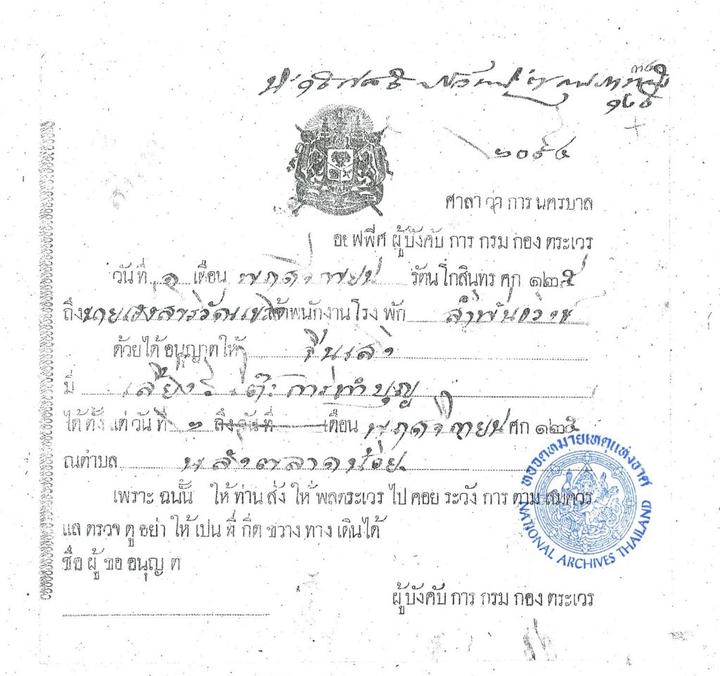 ๒๐๕๔
ศาลา วา การ นครบาล
ออฟฟีศ ผู้บังคับ การ กรม กอง ตระเวร
วัน ที่ ๑ เดือน พฤศจิกายน รัตนโกสินทร ศก ๑๒๕
ถึง นาย เจ้าพนักงาน โรง พัก สำพันธวงษ์
ด้วย ได้ อนุญาต ให้ จีนเลา
มี เลี้ยงโต๊ะ การทำบุญ
ได้ ตั้ง แต่ วัน ที่ ๒ ถึง วัน ที่ เดือน พฤศจิกายน ศก ๑๒๕
ณตำบล หลังตลาดน้อย
เพราะ ฉนั้น ให้ ท่าน สั่ง ให้ พลตระเวร ไป คอย ระวัง การ ตาม สมควร
แล ตรวจ ดู อย่า ให้ เปน ที่ กีด ขวาง ทาง เดิน ได้
ชื่อ ผู้ ขอ อนุญาต
ผู้บังคับ การ กรม กอง ตระเวร
หอจดหมายเหตุแห่งชาติ
NATIONAL ARCHIVES THAILAND